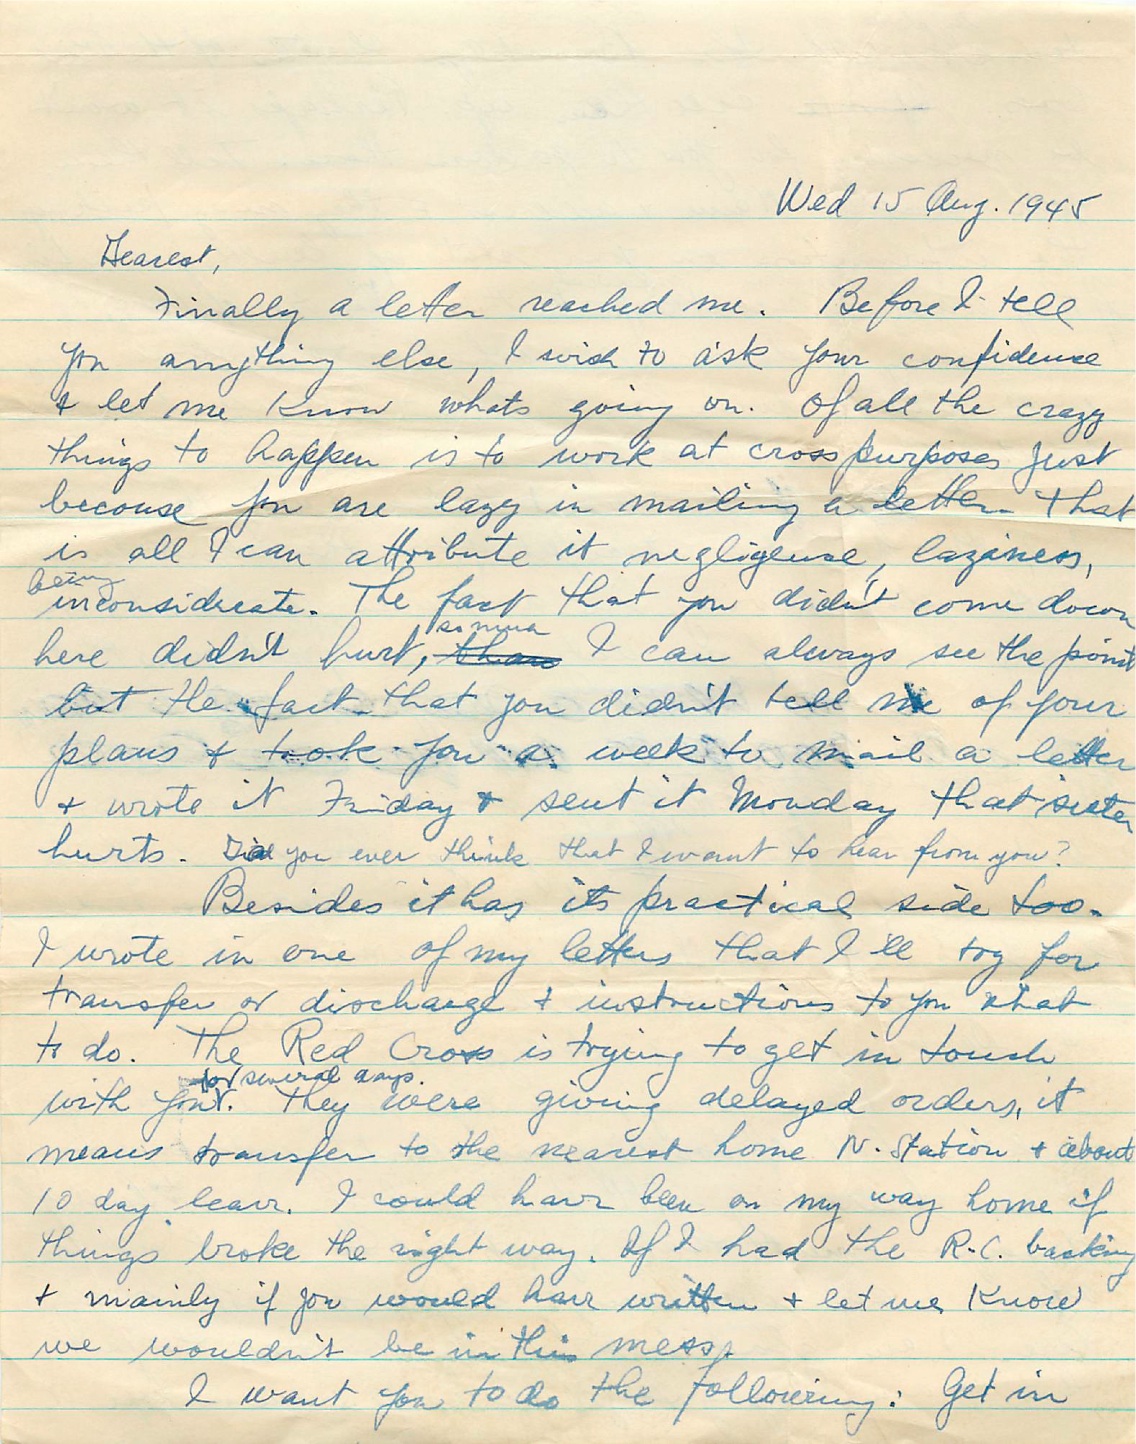 Wed 15 Aug. 1945
Dearest,
Finally a letter reached me. Before I tell
you anything else, I wish to ask your confidence
& let me know whats going on. Of all the crazy
things to happen is to work at cross purposes just
becouse you are lazy in mailing a letter. That
is all I can attribute it negligense, laziness,
being
inconsiderate. The fact that you didn't come down
so much
here didn't hurt, I can always see the point
but the fact that you didn't tell me of your
plans & took you a week to mail a letter
& wrote it Friday & sent it Monday that sister
hurts. Did you ever think that I want to hear from you?
Besides it has its practical side too.
I wrote in one of my letters that I'll try for
transfer or discharge & instructions to you what
to do. The Red Cross is trying to get in touch
for several days.
with you. They were giving delayed orders, it
means transfer to the nearest home N. Station & about
10 day leave. I could have been on my way home if
things broke the right way. If I had the R.C. backing
& mainly if you would have written & let me know
we wouldn't be in this mess.
I want you to do the following: Get in